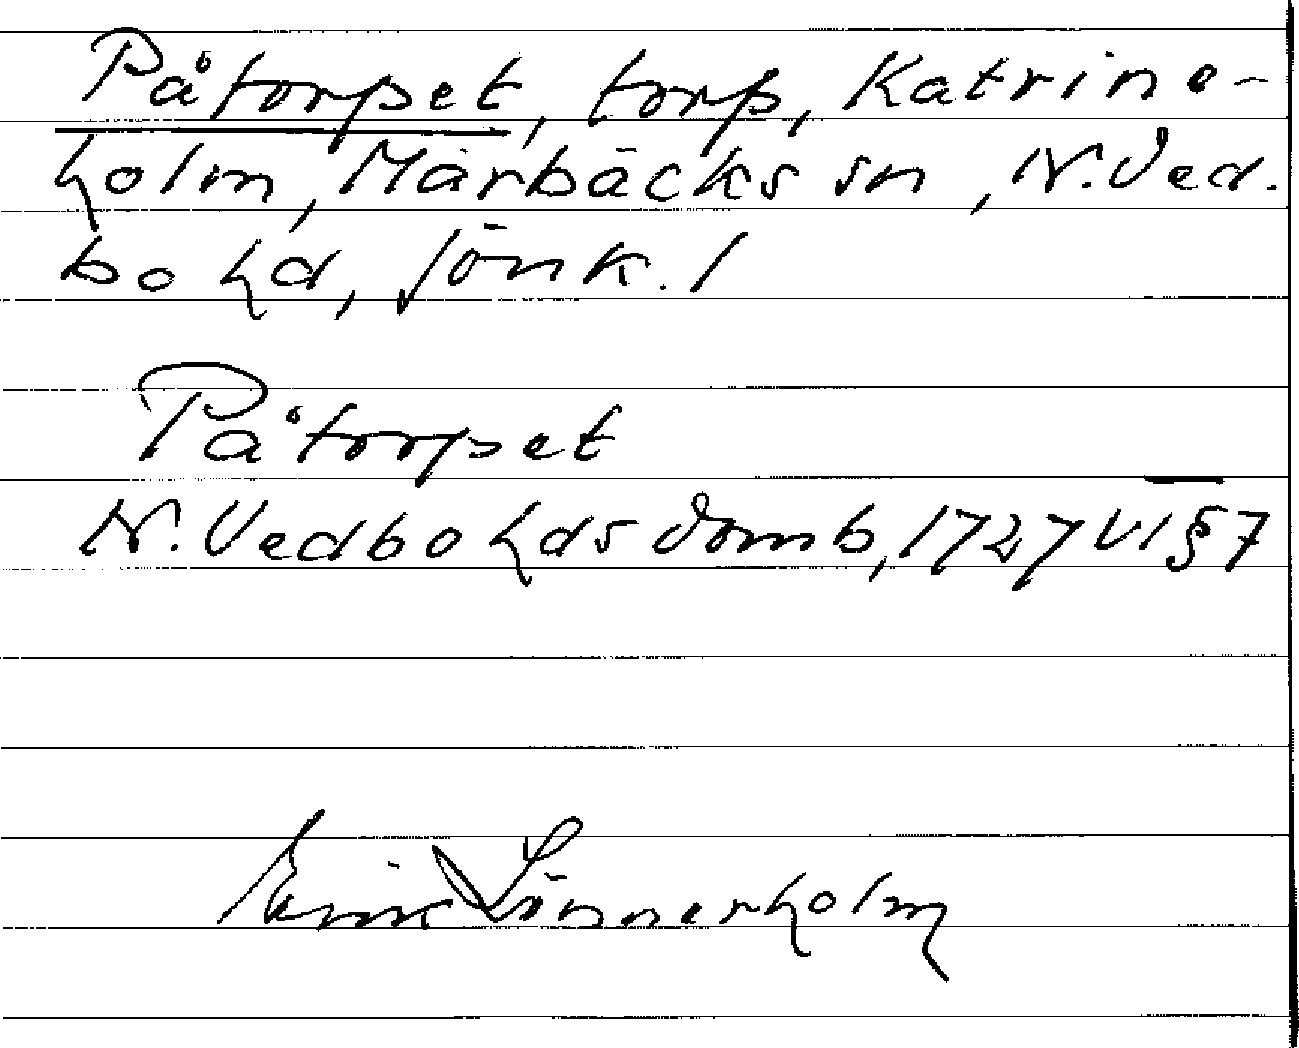 Påtorpet, torp, Katrine-
holm, Marbäcks sn, N. Ved.
bo hd, Jönk. l
Påtorpet
N. Vedbo hds domb, 1727 VI § 7
Erik Lönnerholm